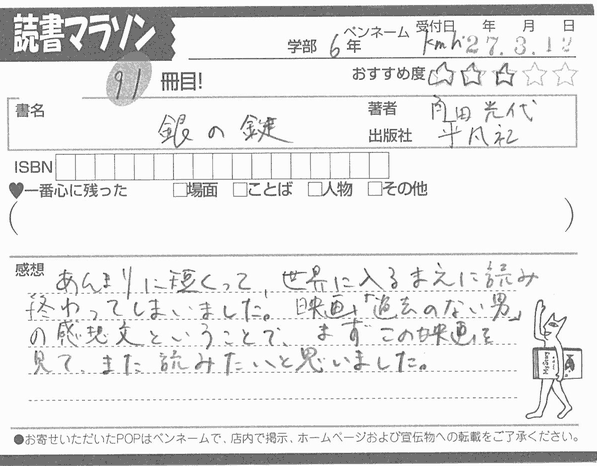 読書マラソン
学部 6年 ペンネーム kmh 受付日 年 月 日
27.3.12
91 冊目! おすすめ度 ☆☆☆☆☆
書名 銀の鍵
著者 角田光代
出版社 平凡社
ISBN
♥一番心に残った □場面 □ことば □人物 □その他
( )
感想 あんまりに短くって、世界に入るまえに読み
終わってしまいました。映画「過去のない男」
の感想文ということで、まずこの映画を
見て、また読みたいと思いました。
●お寄せいただいたPOPはペンネームで、店内で掲示、ホームページおよび宣伝物への転載をご了承ください。